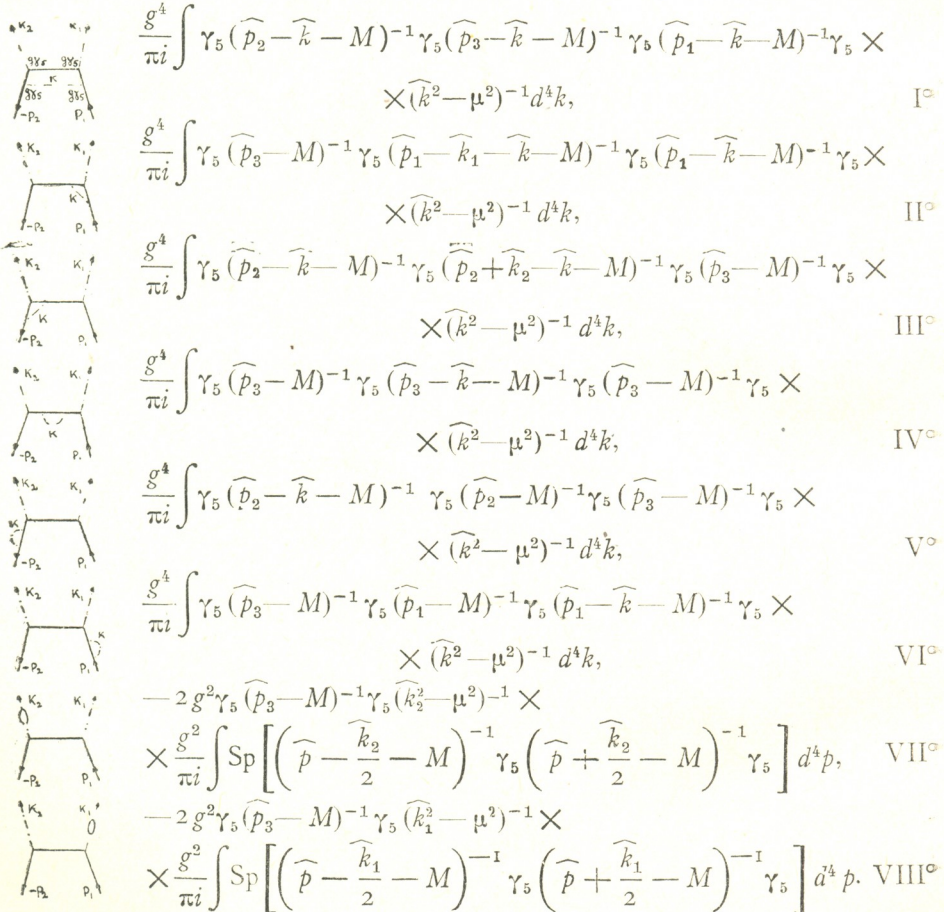 K₂ K₁
gγ₅ gγ₅
K
gγ₅ gγ₅
-P₂ P₁
g⁴/πi ∫ γ₅ (p̂₂ − k̂ − M)⁻¹ γ₅ (p̂₃ − k̂ − M)⁻¹ γ₅ (p̂₁ − k̂ − M)⁻¹ γ₅ ×
× (k̂² − μ²)⁻¹ d⁴k, I°
K₂ K₁
K
-P₂ P₁
g⁴/πi ∫ γ₅ (p̂₃ − M)⁻¹ γ₅ (p̂₁ − k̂₁ − k̂ − M)⁻¹ γ₅ (p̂₁ − k̂ − M)⁻¹ γ₅ ×
× (k̂² − μ²)⁻¹ d⁴k, II°
K₂ K₁
K
-P₂ P₁
g⁴/πi ∫ γ₅ (p̂₂ − k̂ − M)⁻¹ γ₅ (p̂₂ + k̂₂ − k̂ − M)⁻¹ γ₅ (p̂₃ − M)⁻¹ γ₅ ×
× (k̂² − μ²)⁻¹ d⁴k, III°
K₂ K₁
K
-P₂ P₁
g⁴/πi ∫ γ₅ (p̂₃ − M)⁻¹ γ₅ (p̂₃ − k̂ − M)⁻¹ γ₅ (p̂₃ − M)⁻¹ γ₅ ×
× (k̂² − μ²)⁻¹ d⁴k, IV°
K₂ K₁
K
-P₂ P₁
g⁴/πi ∫ γ₅ (p̂₂ − k̂ − M)⁻¹ γ₅ (p̂₂ − M)⁻¹ γ₅ (p̂₃ − M)⁻¹ γ₅ ×
× (k̂² − μ²)⁻¹ d⁴k, V°
K₂ K₁
K
-P₂ P₁
g⁴/πi ∫ γ₅ (p̂₃ − M)⁻¹ γ₅ (p̂₁ − M)⁻¹ γ₅ (p̂₁ − k̂ − M)⁻¹ γ₅ ×
× (k̂² − μ²)⁻¹ d⁴k, VI°
K₂ K₁
-P₂ P₁
− 2 g² γ₅ (p̂₃ − M)⁻¹ γ₅ (k̂₂² − μ²)⁻¹ ×
× g²/πi ∫ Sp [(p̂ − k̂₂/2 − M)⁻¹ γ₅ (p̂ + k̂₂/2 − M)⁻¹ γ₅] d⁴p, VII°
K₂ K₁
-P₂ P₁
− 2 g² γ₅ (p̂₃ − M)⁻¹ γ₅ (k̂₁² − μ²)⁻¹ ×
× g²/πi ∫ Sp [(p̂ − k̂₁/2 − M)⁻¹ γ₅ (p̂ + k̂₁/2 − M)⁻¹ γ₅] d⁴ p. VIII°